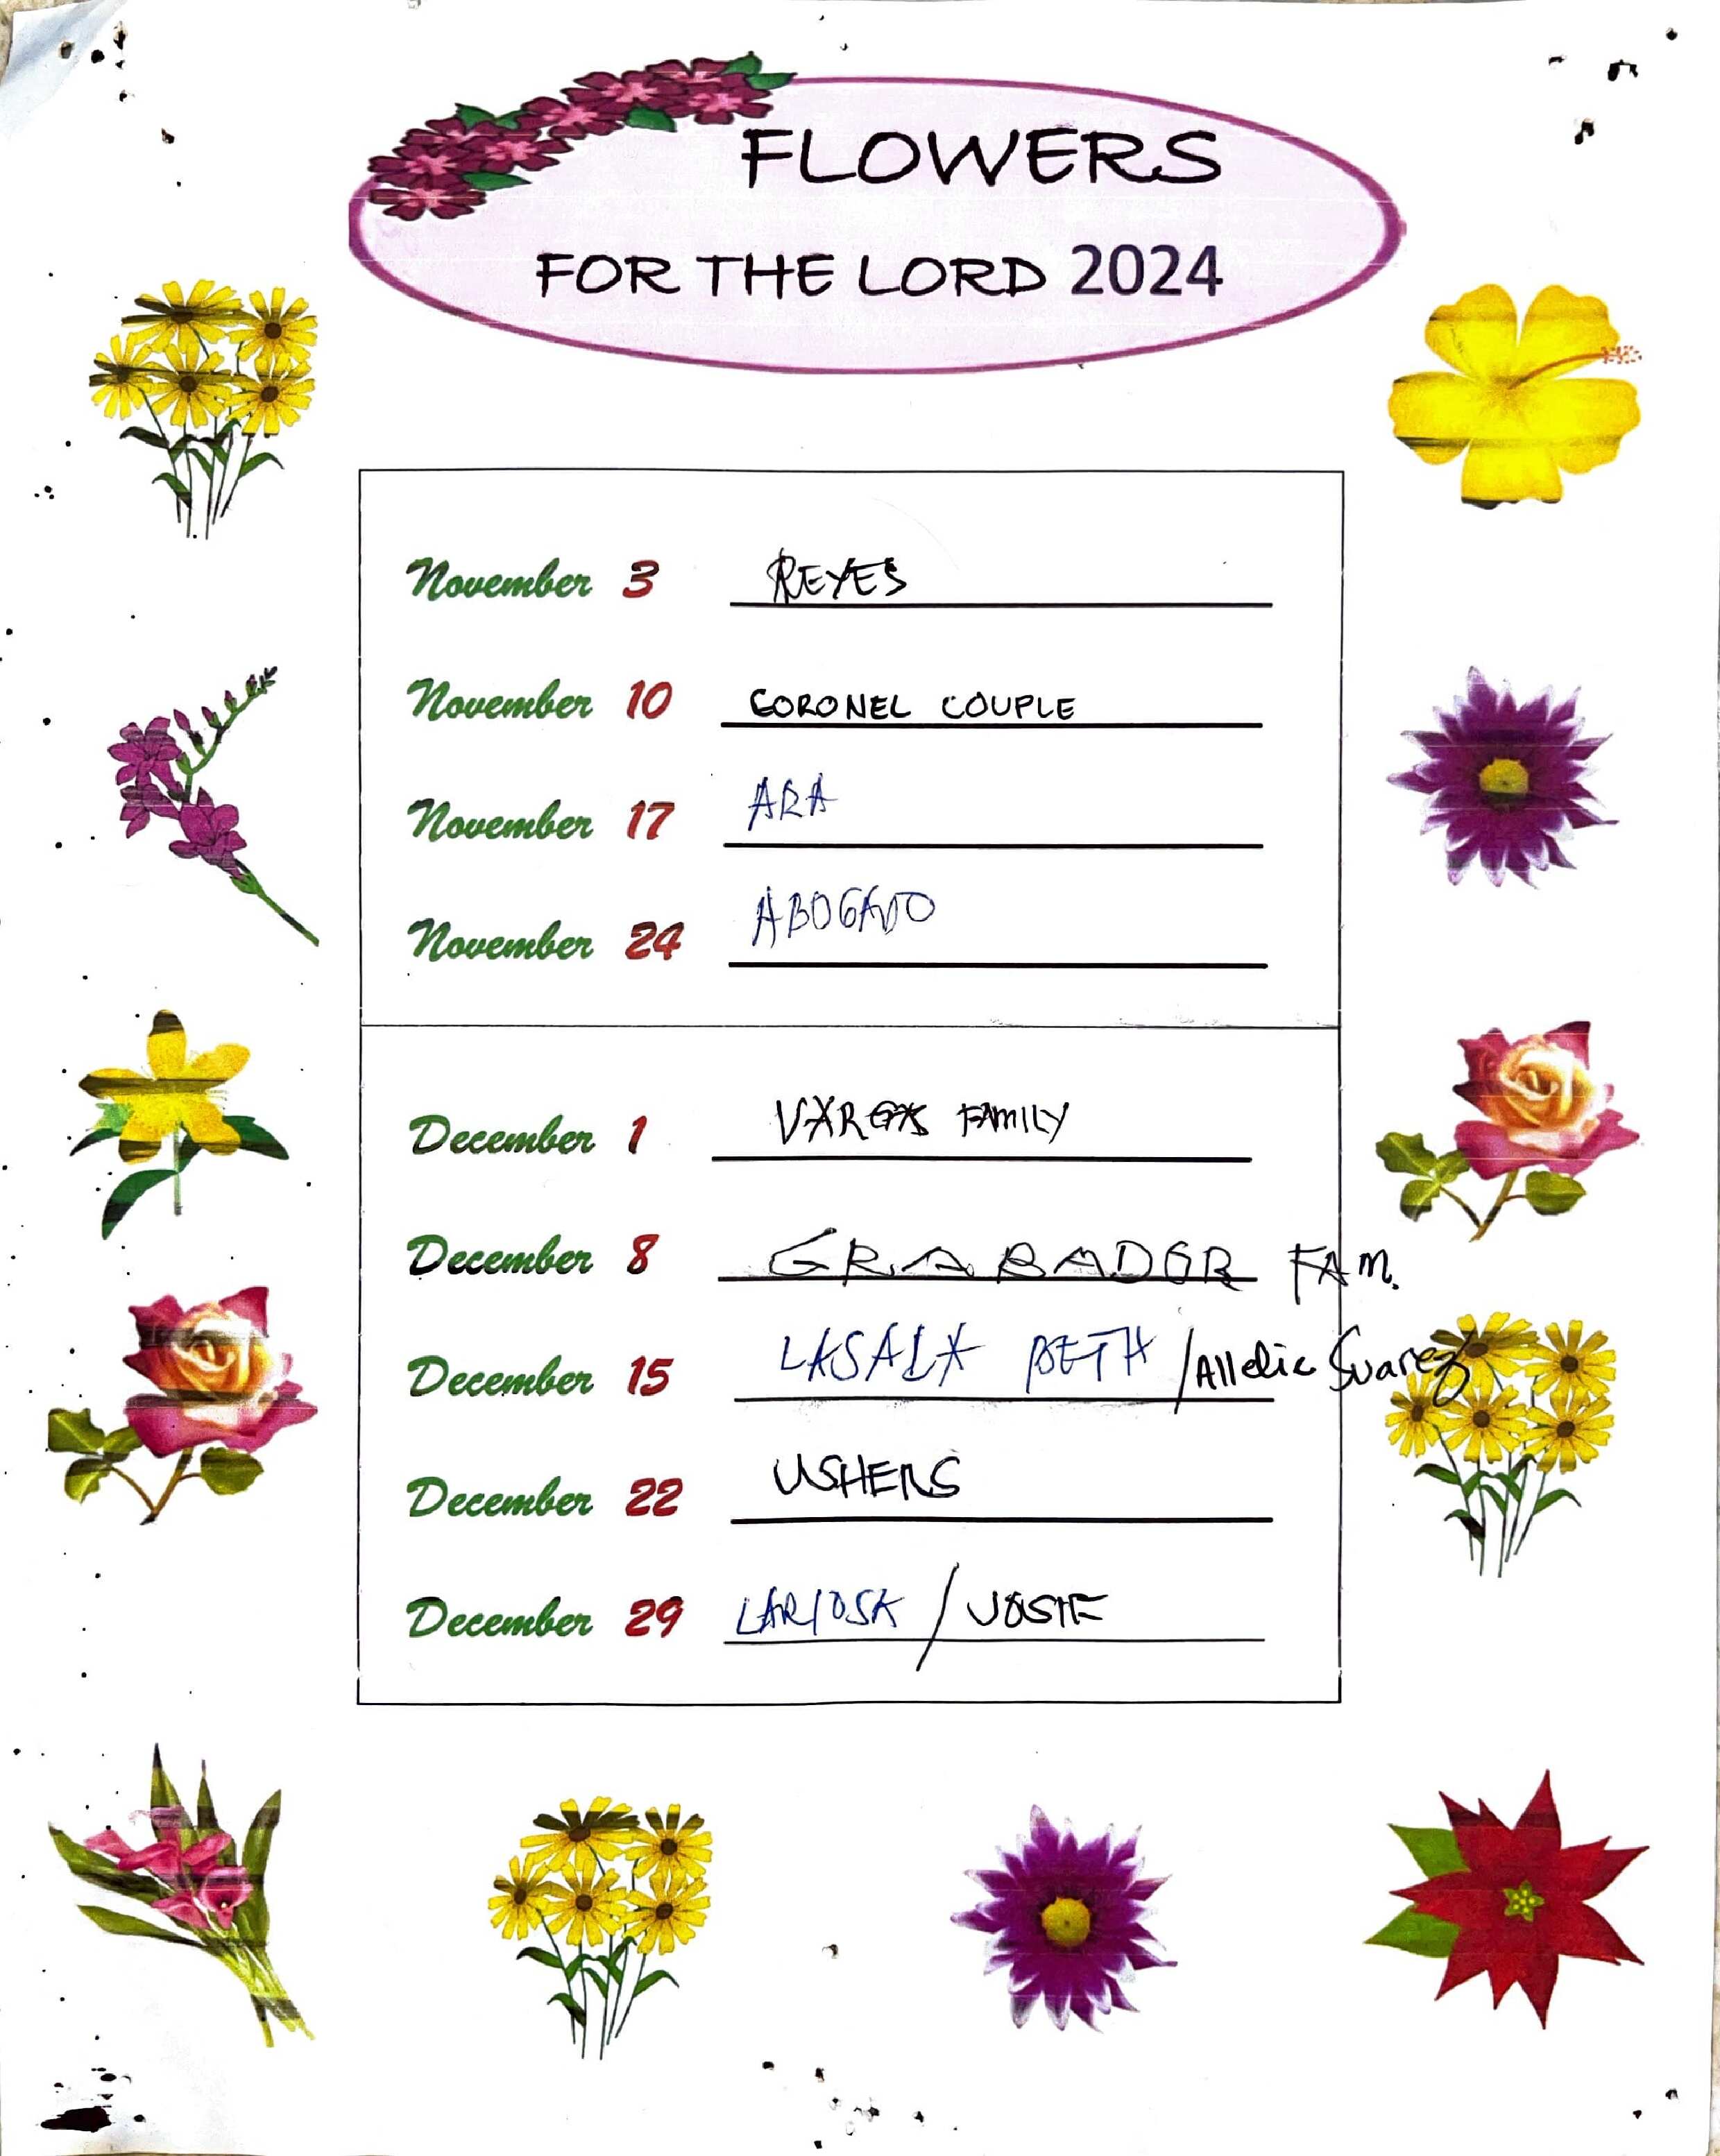 FLOWERS
FOR THE LORD 2024
November 3 REYES
November 10 CORONEL COUPLE
November 17 ARA
November 24 ABOGADO
December 1 VARGAS FAMILY
December 8 GRABADOR FAM.
December 15 LASALA BETH / Allelie Suarez
December 22 USHERS
December 29 LARIOSA / JOSIE